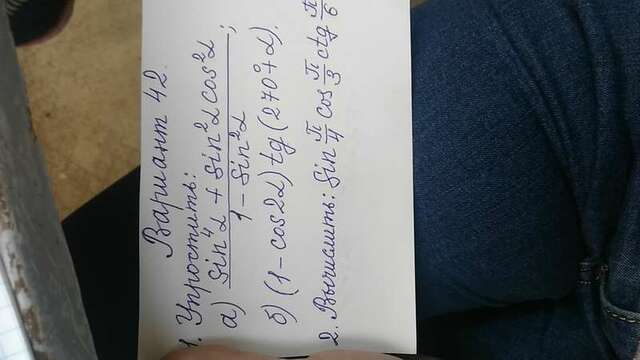 Вариант 42.
1. Упростить:
а) (sin⁴α + sin²α cos²α) / (1 - sin²α) ;
б) (1 - cos2α) tg (270° + α).
2. Вычислить: sin π/4 cos π/3 ctg π/6